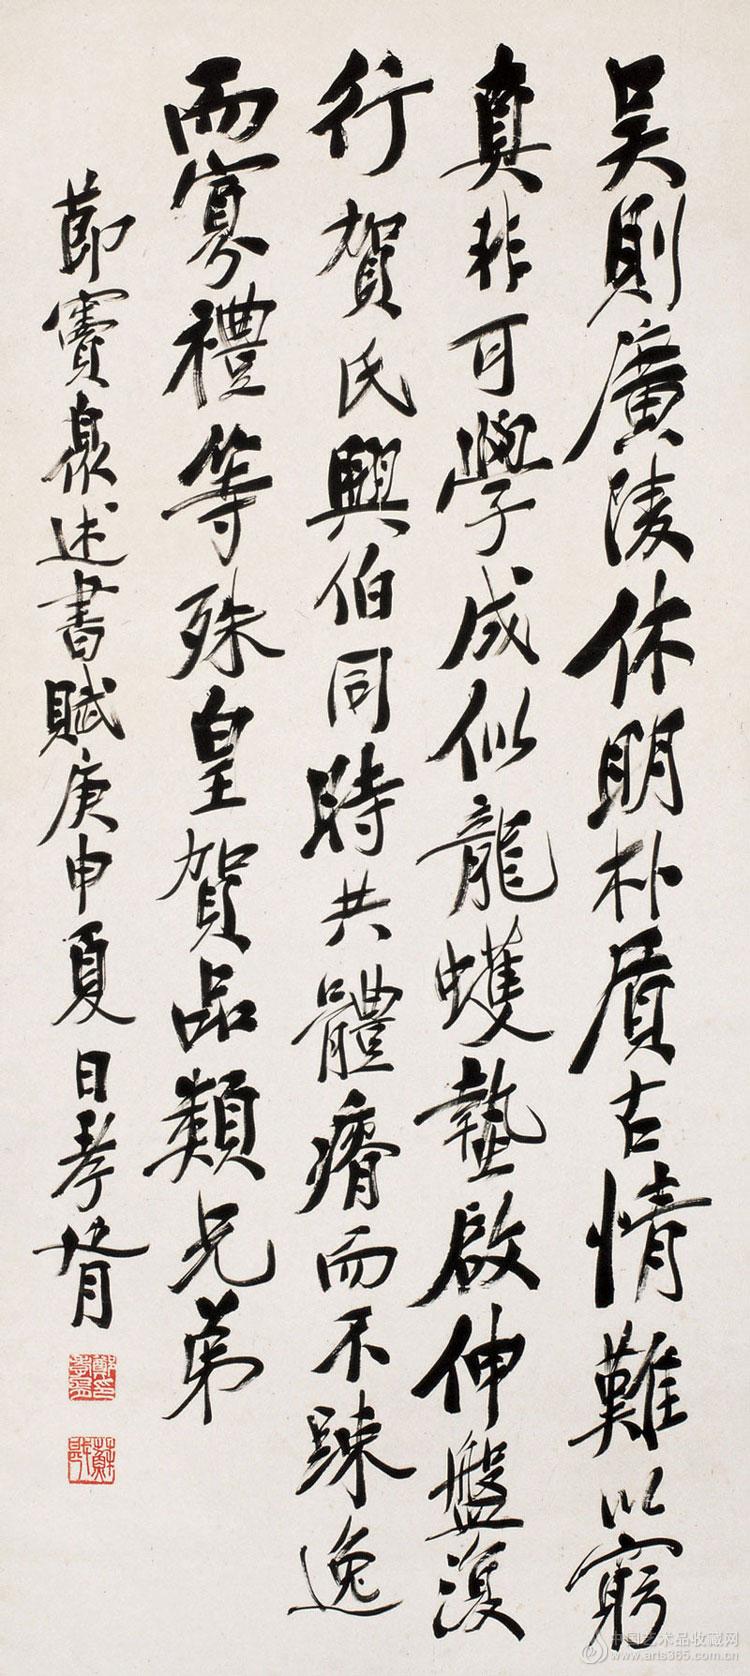 吴則廣陵休明朴質古情難以窮
真非可學成似龍蠖蟄啟伸盤復
行賀氏興伯同時共體瘠而不踈逸
而寡禮等殊皇賀品類兄弟
節竇臮述書賦庚申夏日孝胥
鄭孝胥印
蘇戡
中国艺术品收藏网
www.arts365.com.cn